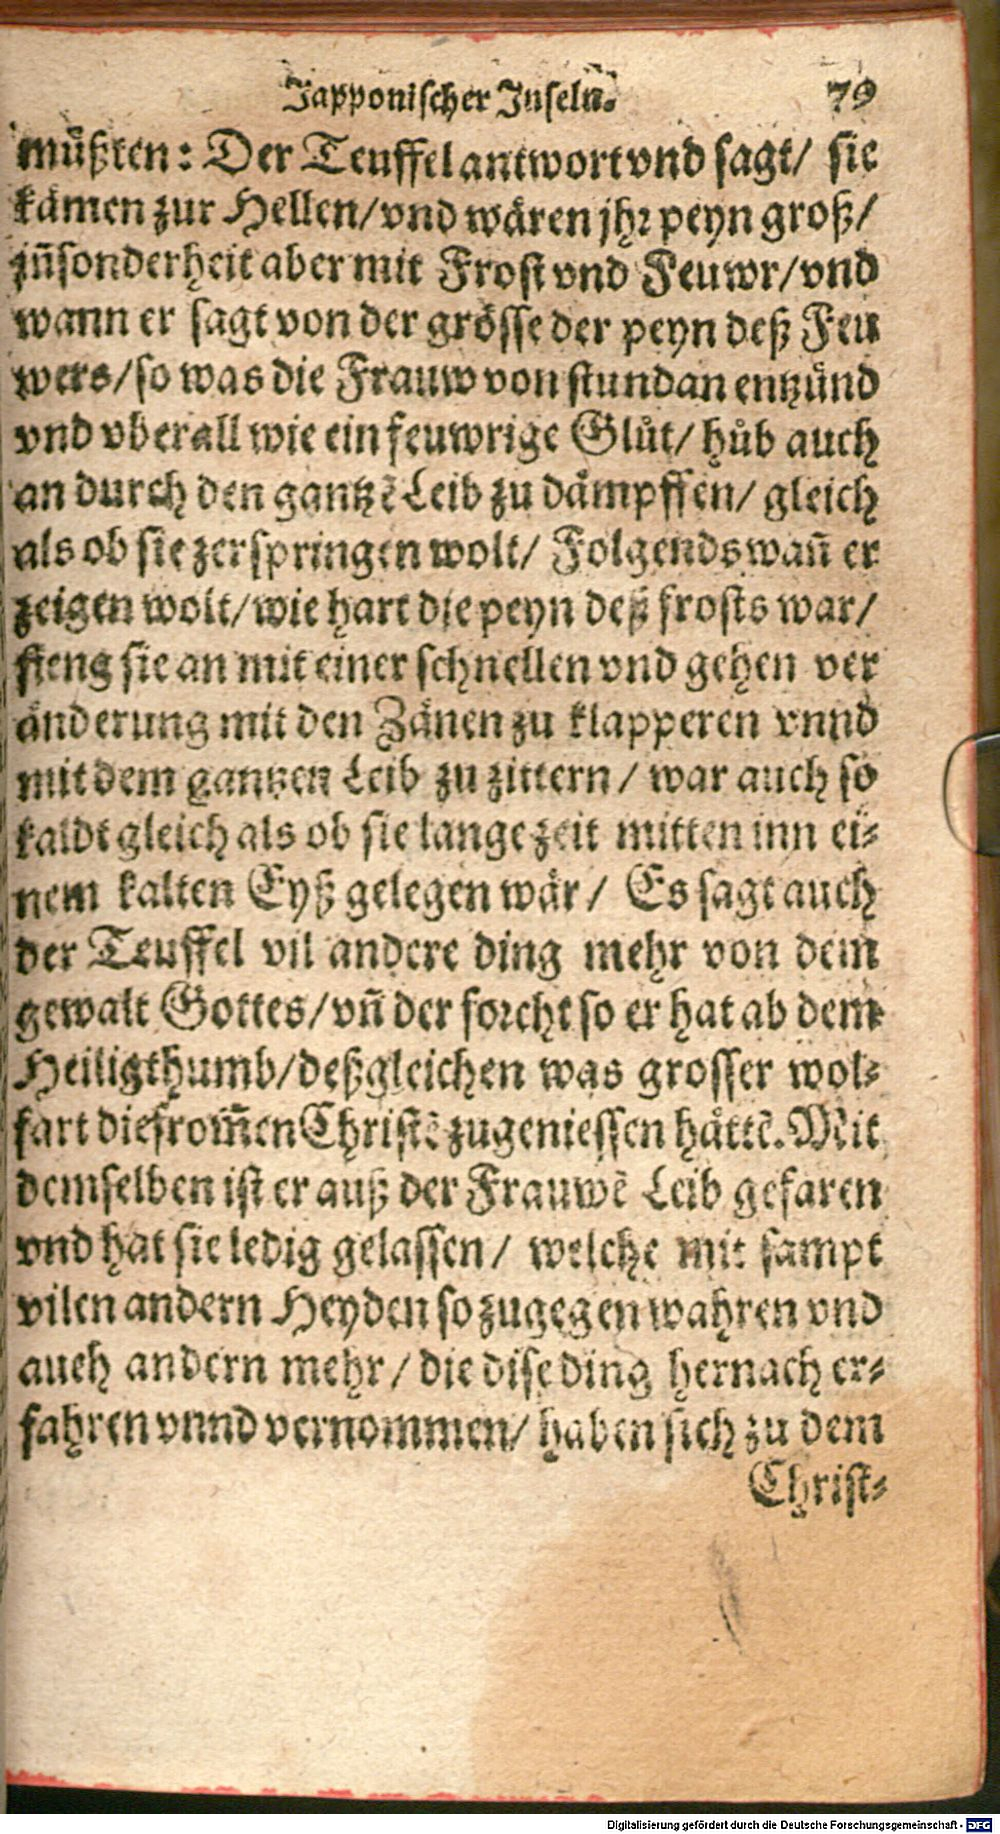 Japponischer Inseln. 79
muͤßten: Der Teuffel antwort vnd sagt/ sie
kaͤmen zur Hellen/ vnd waͤren jhr peyn groß/
jñsonderheit aber mit Frost vnd Feuwr/ vnd
wann er sagt von der groͤsse der peyn deß Feu
wers/ so was die Frauw von stund an entzuͤnd
vnd vberall wie ein feuwrige Gluͤt/ huͤb auch
an durch den gantzē Leib zu daͤmpffen/ gleich
als ob sie zerspringen wolt/ Folgends wañ er
zeigen wolt/ wie hart die peyn deß frosts war/
fieng sie an mit einer schnellen vnd gehen ver
aͤnderung mit den Zaͤnen zu klapperen vnnd
mit dem gantzen Leib zu zittern/ war auch so
kaldt gleich als ob sie lange zeit mitten inn ei-
nem kalten Eyß gelegen waͤr/ Es sagt auch
der Teuffel vil andere ding mehr von dem
gewalt Gottes/ vñ der forcht so er hat ab dem
Heiligthumb/ deßgleichen was grosser wol-
fart die from̃en Christē zugeniessen haͤttē. Mit
demselben ist er auß der Frauwē Leib gefaren
vnd hat sie ledig gelassen/ welche mit sampt
vilen andern Heyden so zugegen wahren vnd
auch andern mehr/ die dise ding hernach er-
fahren vnnd vernommen/ haben sich zu dem
Christ-
Digitalisierung gefördert durch die Deutsche Forschungsgemeinschaft - DFG